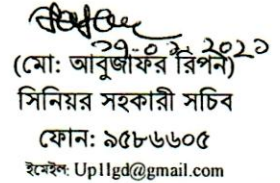 (মো: আবুজাফর রিপন)
সিনিয়র সহকারী সচিব
ফোন: ৯৫৮৬৬০৫
ইমেইল: Up1lgd@gmail.com